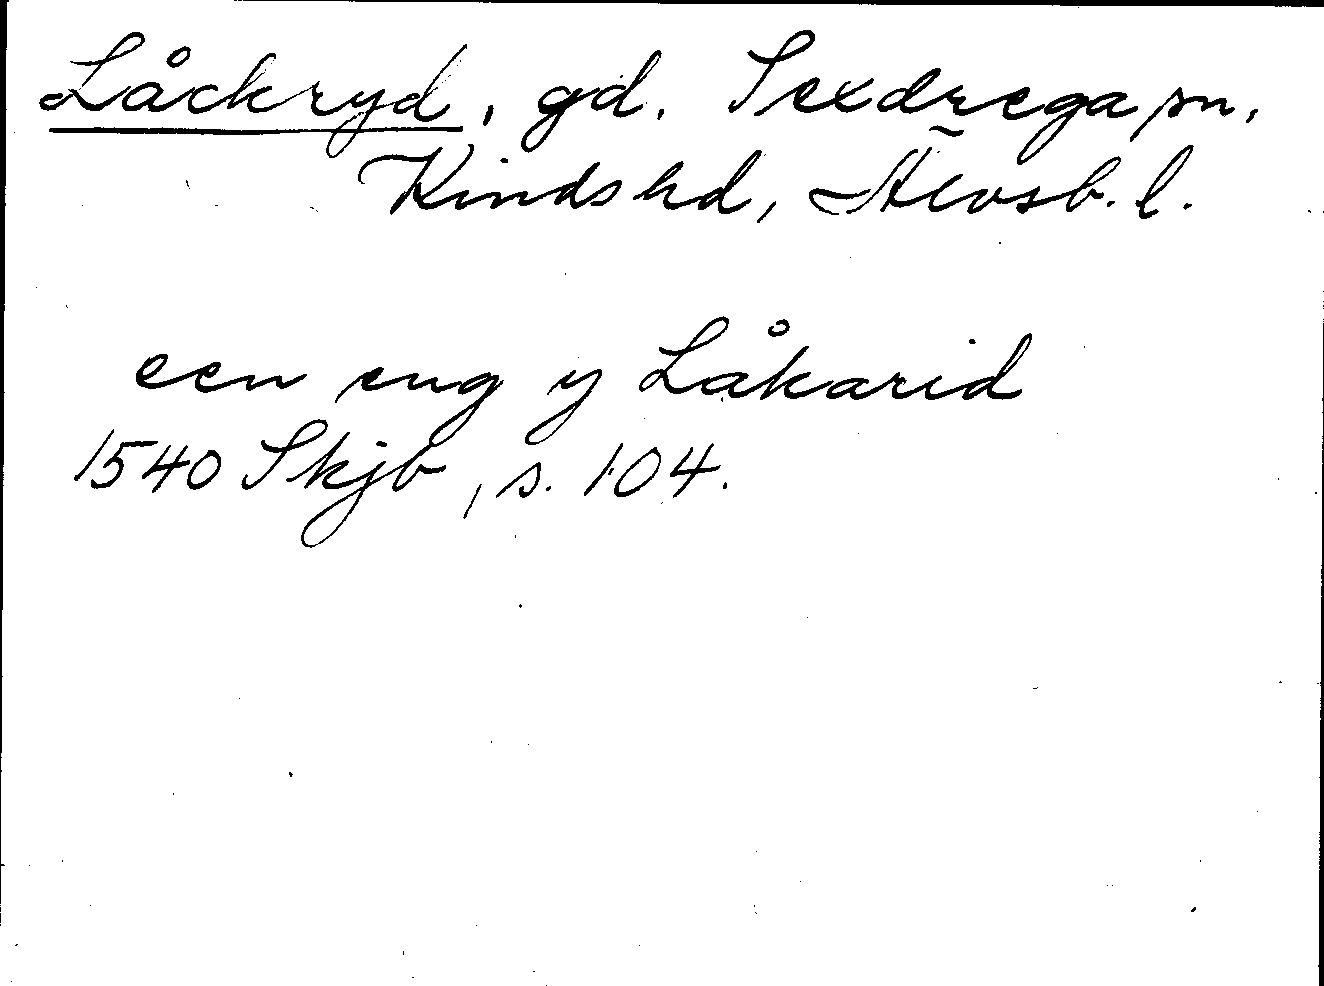 Låckryd, gd. Sexdrega sn.
Kinds hd, Älvsb. l.
een eng y Låkarid
1540 Skjb, s. 104.